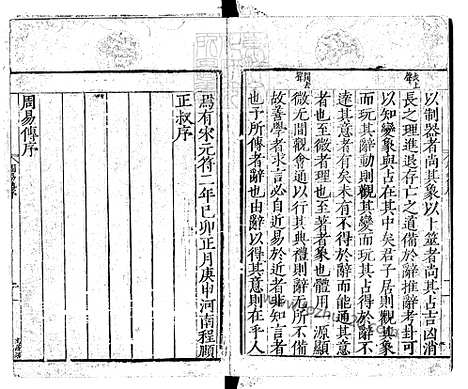 以制器者尚其象以卜筮者尚其占吉凶消
長之理進退存亡之道備於辭推辭考卦可
以知變象與占在其中矣君子居則觀其象
而玩其辭動則觀其變而玩其占得於辭不
達其意者有矣未有不得於辭而能通其意
者也至微者理也至著者象也體用一源顯
微无間觀會通以行其典禮則辭无所不備
故善學者求言必自近易於近者非知言者
也予所傳者辭也由辭以得其意則在乎人
焉有宋元符二年己卯正月庚申河南程頤
正叔序
周易傳序